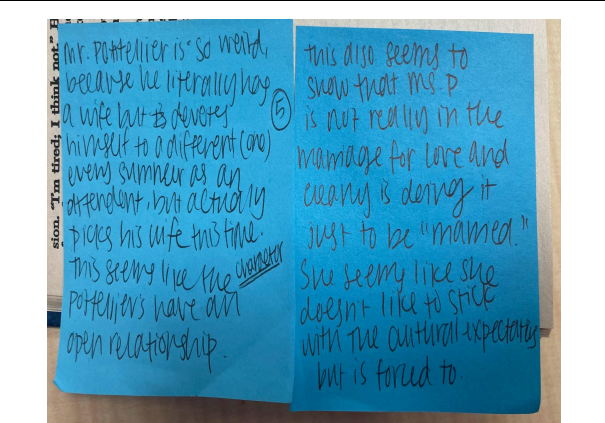 sion. "I'm tired; I think not."
mr. Pontellier is so weird,
because he literally has
a wife but is devotes
himself to a different (one)
every summer as an
attendent, but actually
picks his wife this time.
This seems like the character
Pontelliers have an
open relationship.
5
this also seems to
show that Ms. P
is not really in the
marriage for love and
clearly is doing it
just to be "married."
She seems like she
doesn't like to stick
with the cultural expectations
but is forced to.